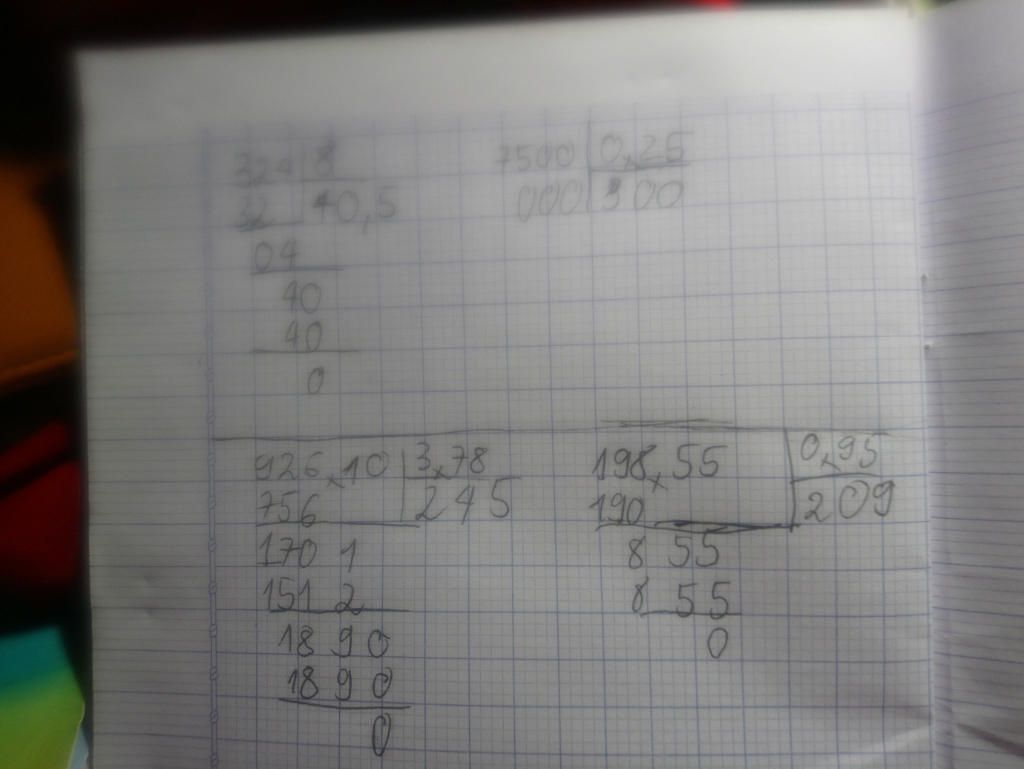 324 8
32 40,5
04
40
40
0
7500 0,25
000 300
926,10 3,78
756 245
170 1
151 2
18 9 0
18 9 0
0
198,55 0,95
190 209
8 55
8 55
0